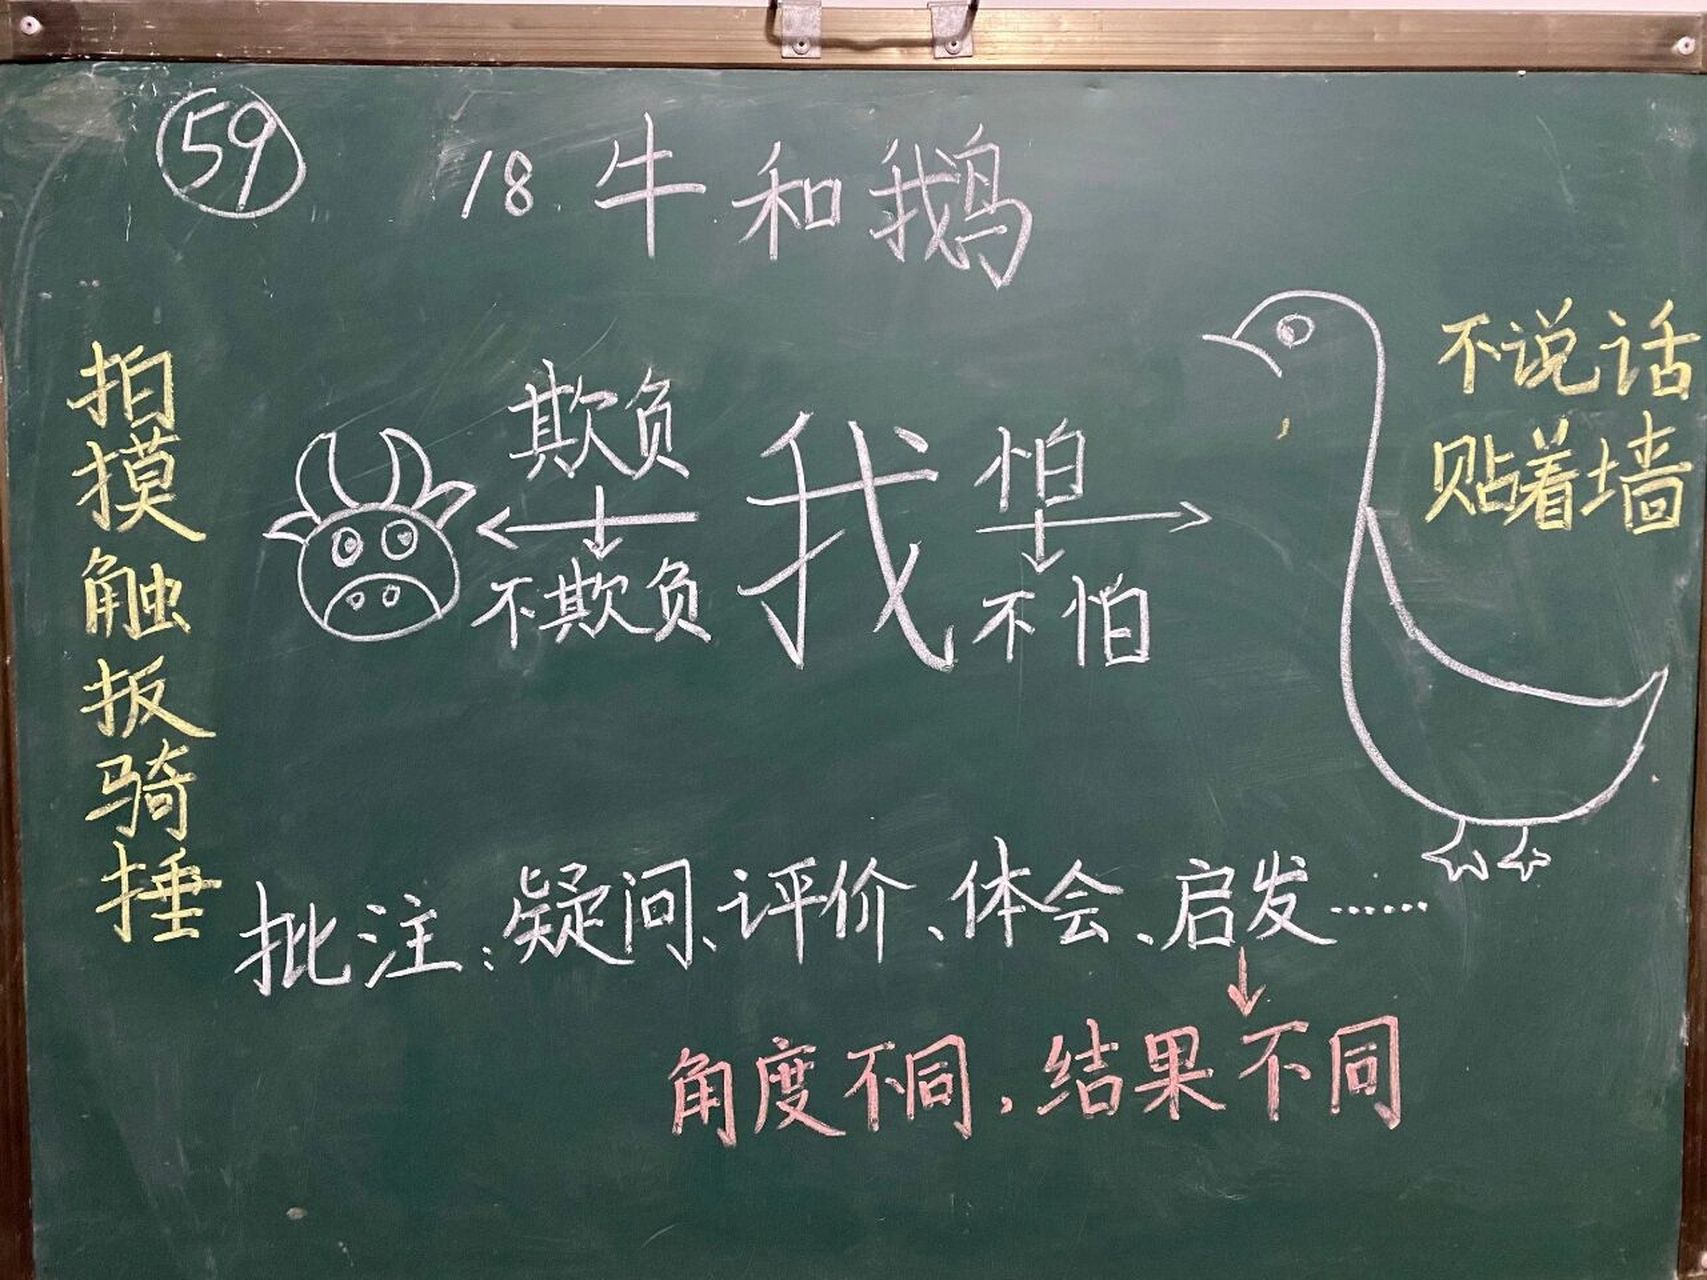 59
18.牛和鹅
拍
摸
触
扳
骑
捶
欺负
不欺负
我
怕
不怕
不说话
贴着墙
批注:疑问、评价、体会、启发……
角度不同,结果不同